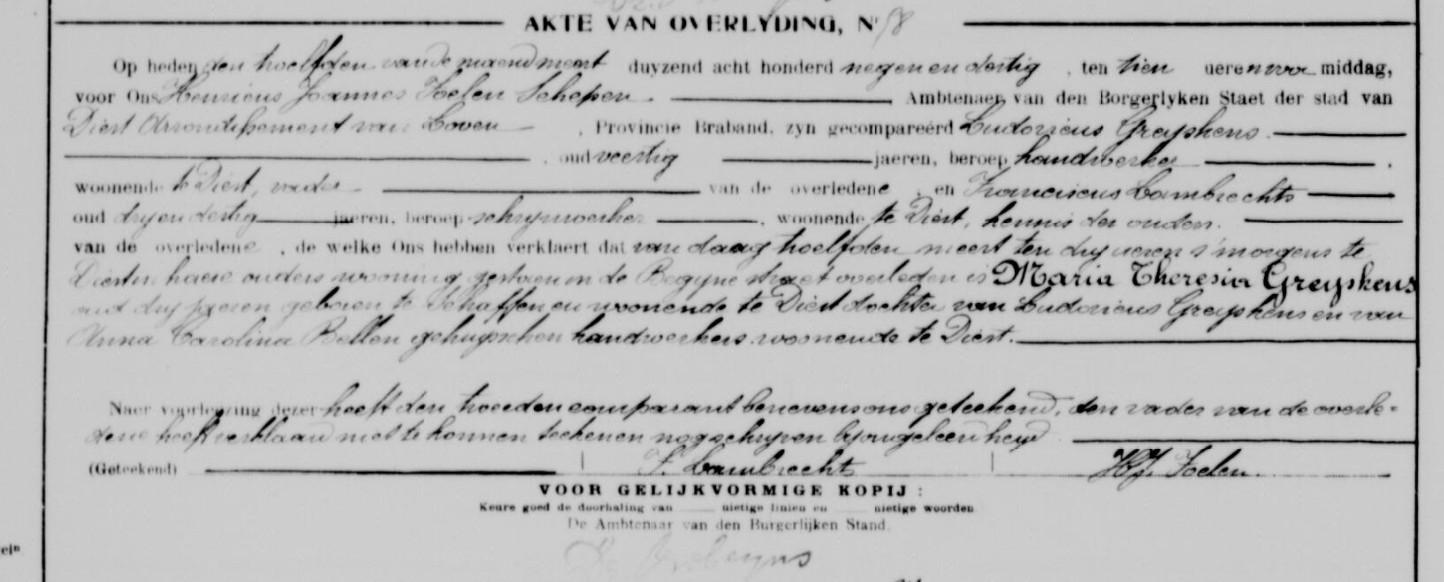 AKTE VAN OVERLYDING, Nr 58
Op heden den twelfden van de maend meert duyzend acht honderd negen en dertig, ten tien ueren voor middag,
voor Ons Henricus Joannes Zoelen Schepen Ambtenaer van den Borgerlyken Staet der stad van
Diest Arrondissement van Loven, Provincie Braband, zyn gecompareérd Ludovicus Greyskens
, oud veertig jaeren, beroep handwerker,
woonende te Diest, vader van de overledene, en Franciscus Lambrechts
oud dryendertig jaeren, beroep schrynwerker, woonende te Diest, kennis der ouders
van de overledene, de welke Ons hebben verklaert dat van daag twelfden meert ten dry ueren s'morgens te
Diest in haere ouders wooning gestaen in de Begyne straet overleden is Maria Theresia Greyskens
oud dry jaeren geboren te Schaffen en woonende te Diest dochter van Ludovicus Greyskens en van
Anna Carolina Bellen gehuysschen handwerkers woonende te Diest.
Naer voorlezing dezer heeft den tweeden comparant benevens ons geteekend, den vader van de overle-
dene heeft verklaard niet te konnen teekenen nog schryven by ongeleerdheyd
(Geteekend) F. Lambrechts H.J. Zoelen.
VOOR GELIJKVORMIGE KOPIJ :
Keure goed de doorhaling van nietige liniën en nietige woorden
De Ambtenaar van den Burgerlijken Stand.